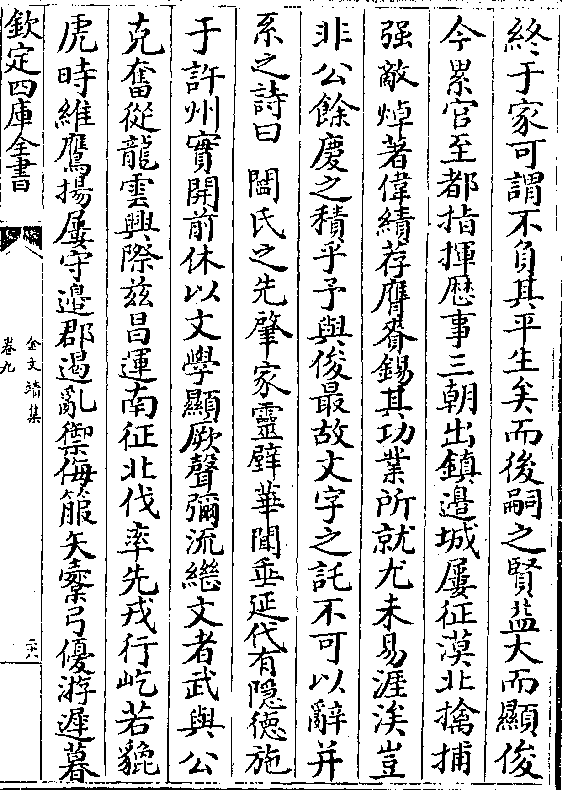 終于家可謂不負其平生矣而後嗣之賢益大而顯俊
今累官至都指揮歴事三朝出鎮邉城屢征漠北擒捕
强敵焯著偉績荐膺賚錫其功業所就尤未易涯涘豈
非公餘慶之積乎予與俊最故文字之託不可以辭并
系之詩曰　閭氏之先肇家靈壁華聞垂延代有隠徳施
于許州實開前休以文學顯厥聲彌流繼文者武與公
克奮從龍雲興際兹昌運南征北伐率先戎行屹若貔
虎時維鷹揚屢守邉郡遏亂禦侮箙矢櫜弓優游遲暮
欽定四庫全書
金文靖集
卷九